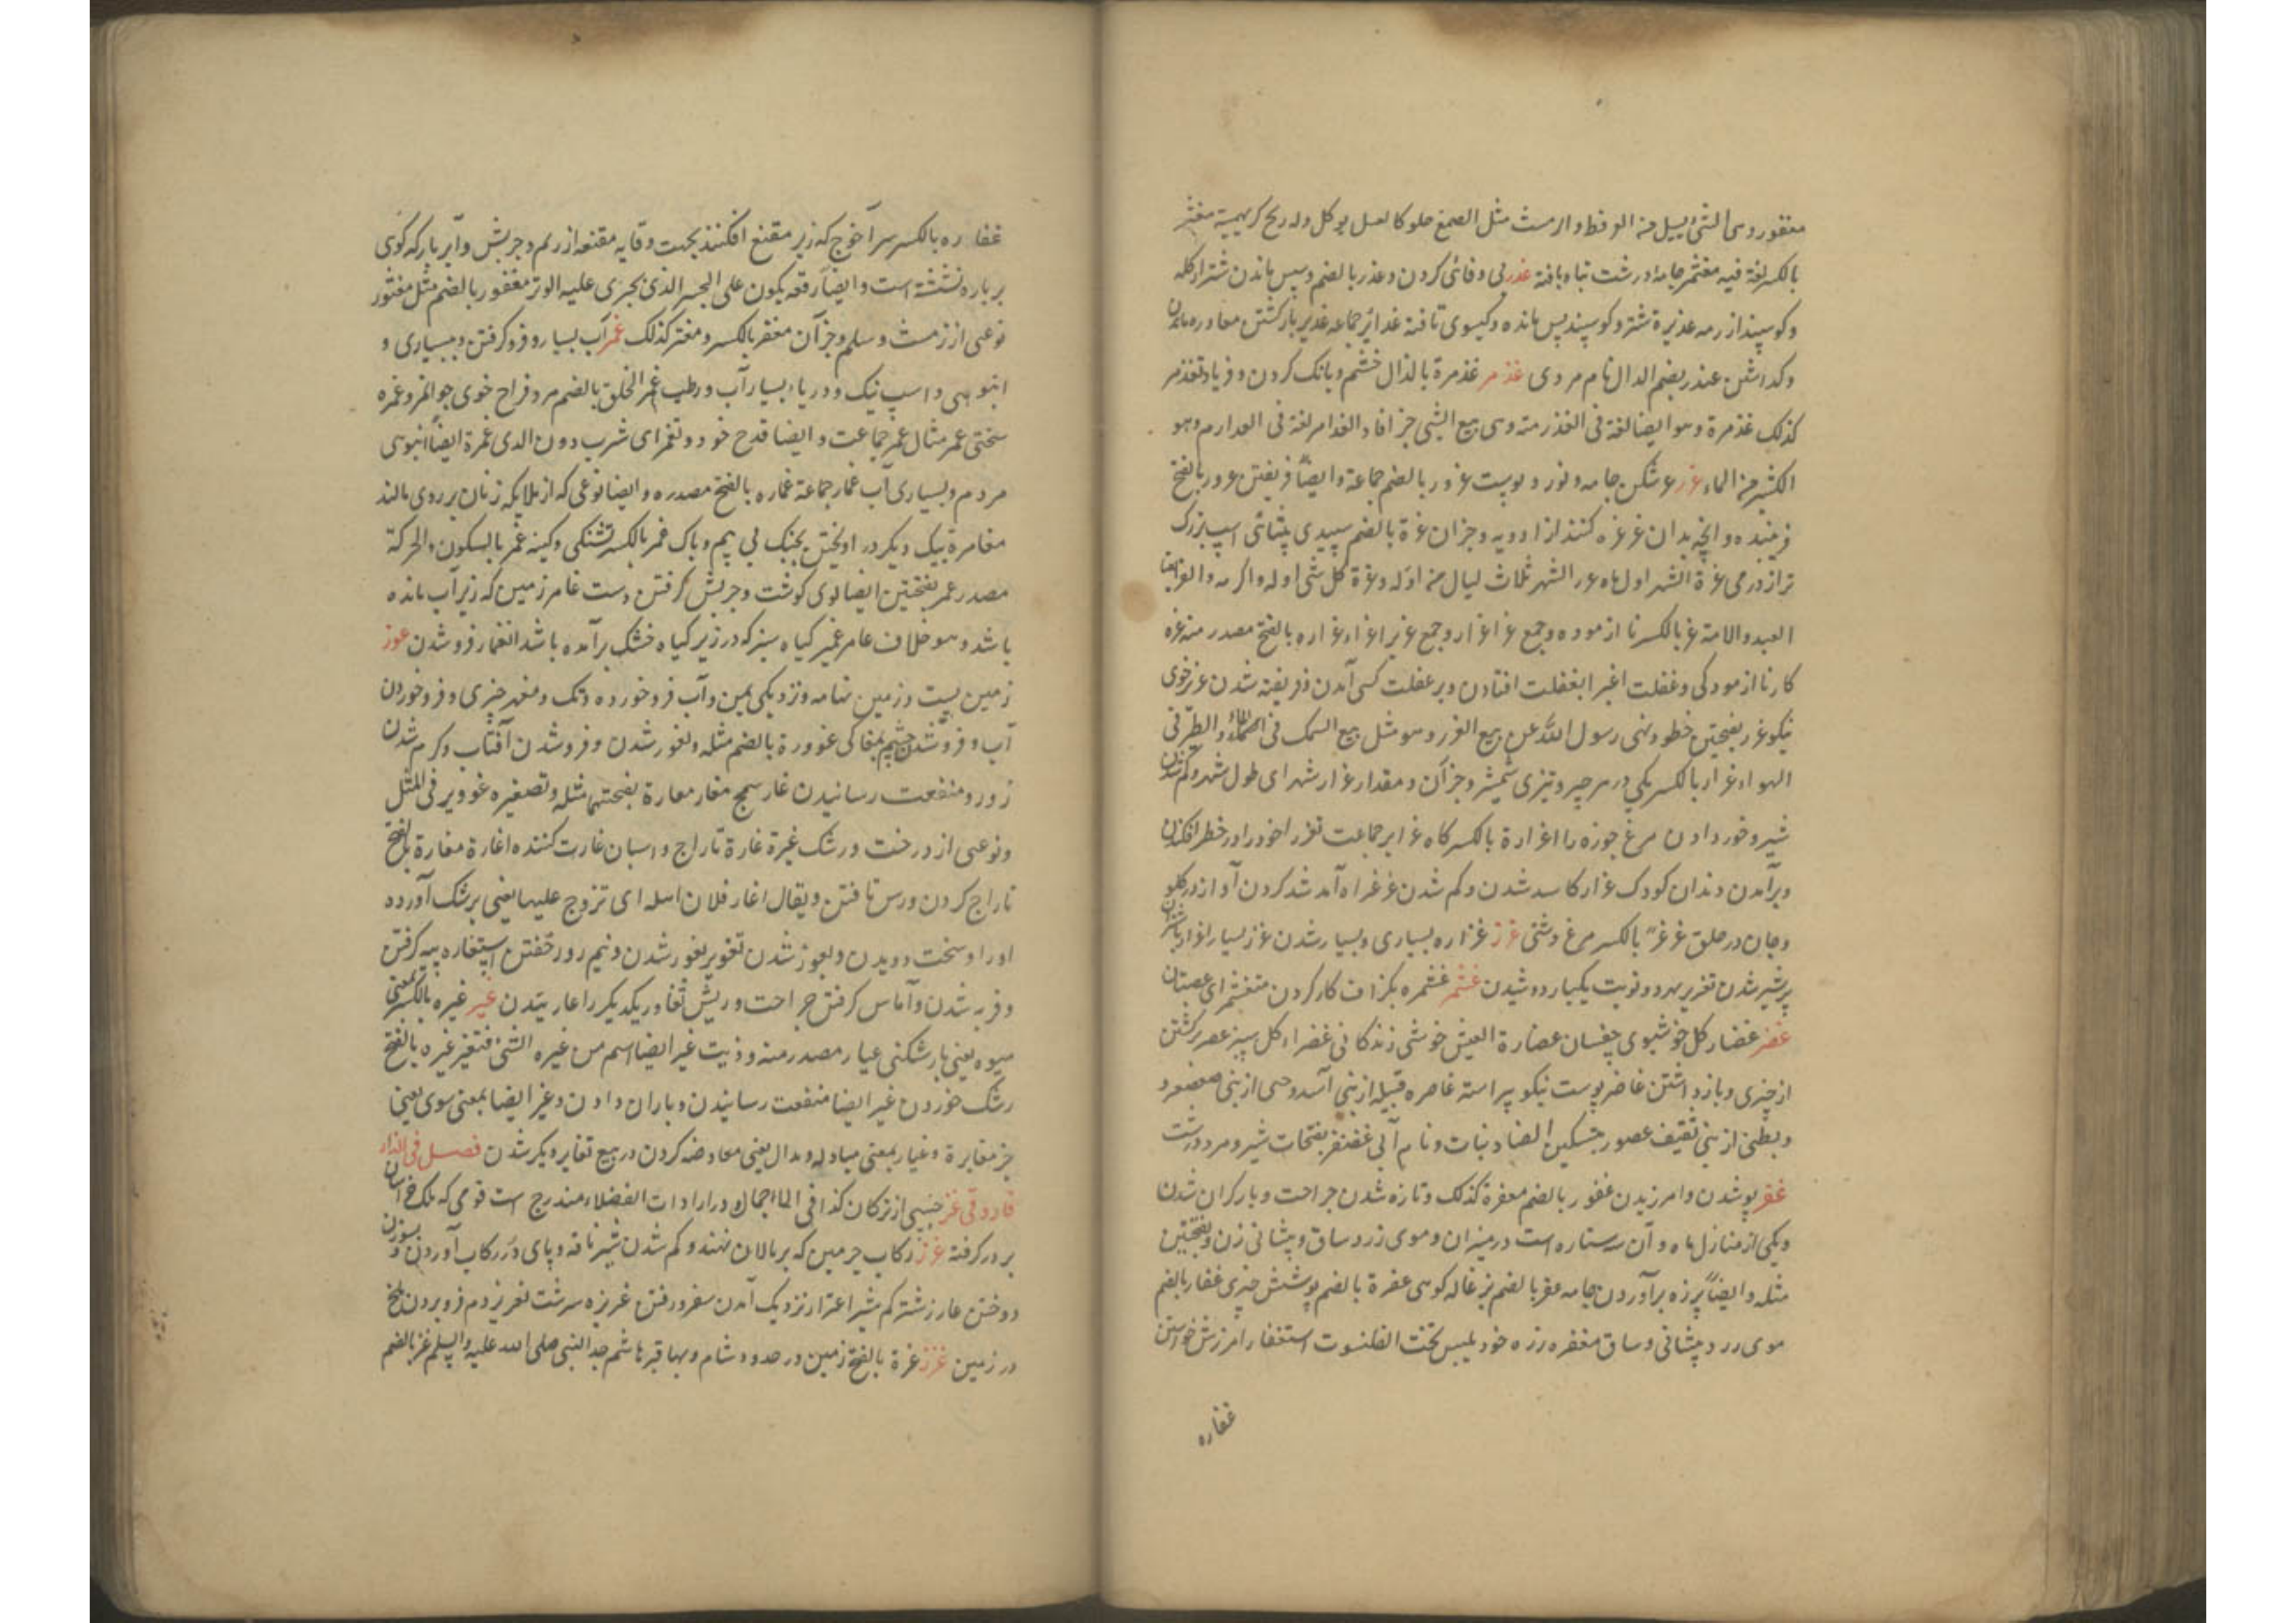 مغفور وهى الشئ يسيل من العرفط والرمث مثل الصمغ حلو كالعسل يوكل وله ريح كريهة مغثر
بالكسر لغة فيه مغثمر جامه درشت تباه بافته غدر بى وفائى كردن وغدر بالضم وسپس ماندن شتر از كله
وكوسپند از رمه غديرة شتر وكوسپند پس مانده وكيسوى تافته غدائر جماعه غدير باركشتن مغادره ماندن
وكداشتن غندر بضم الدال نام مردى غذمر غذمرة بالذال خشم وبانك كردن وفرياد تغذمر
كذلك غذمرة وهو ايضا لغة فى الغذرمة وهى بيع الشئ جزافا والغذامر لغة فى الغذارم وهو
الكثير من الماء غرر غر شكن جامه ونورد پوست غرور بالضم جماعة وايضاً فريفتن غرور بالفتح
فريبنده وانچه بدان غرغره كنند از ادويه وجز آن غرة بالضم سپيدى پيشانى اسپ بزرك
تر از درمى غرة الشهر اول ماه غرر الشهر ثلاث ليال من اوله وغرة كل شئ اوله واكرمه والغرة ايضا
العبد والامة غر بالكسر نا ازموده وجمع غر اغرار وجمع غرير اغراء غراره بالفتح مصدر منه غره
كار نا ازمودكى وغفلت اغترا بغفلت افتادن وبر غفلت كسى آمدن وفريفته شدن غرير خوى
نيكو غرر بفتحتين خطر ونهى رسول الله عن بيع الغرر وهو مثل بيع السمك فى الماء والطير فى
الهواء غرار بالكسر يكى در هر چيز وتيزى شمشير وجز آن ومقدار غرار شهر اى طول شهر وكم شدن
شير وخور دادن مرغ جوزه را اغراره بالكسر كاه غراير جماعت تغرر خود را در خطر افكندن
وبرآمدن دندان كودك غرار كاسد شدن وكم شدن غرغر آمد شد كردن آواز در كلو
وجان در حلق غرغر بالكسر مرغ دشتى غزر غزاره بسيارى وبسيار شدن غزر بسيار اغزار
پرشير شدن تغزير بهر دو نوبت يكبار دوشيدن غشمر غشمره بكزاف كار كردن متغشم اى غصبان
غضر غضار كل خوشبوى چفسان غضارة العيش خوشى زندكانى غضراء كل سبز غضر بركشتن
از چيزى وباز داشتن غاضر پوست نيكو پيراسته غاضره قبيله از بنى اسد وحى از بنى صعصعه
وبطنى از بنى ثقيف غضور بتسكين الضاد نبات ونام آبى غضنفر بفتحات شير ومرد درشت
غفر پوشدن وآمرزيدن غفور بالضم مغفرة كذلك وتازه شدن جراحت وبار كران شدن
ويكى از منازل ماه وآن سه ستاره است در ميزان وموى زرد ساق وپيشانى زن وبفتحتين
مثله وايضاً پرزه برآوردن جامه غفر بالضم بزغاله كوهى غفرة بالضم پوشش چيزى غفار بالضم
موى زرد پيشانى وساق مغفره زره خود يلبس تحت القلنسوة استغفار آمرزش خواستن
غفاره
غفاره بالكسر سرآغوج كه زير مقنع افكنند بجهت وقايه مقنعه از ريم وچربش وابر پاره كه كوى
بر پاره نشسته است وايضاً رقعه يكون على الحبز الذى يجرى عليه الوتر مغفور بالضم مثل مغثور
نوعى از زمث وسلم وجز آن مغفر بالكسر ومغثر كذلك غمر آب بسيار وفرو كرفتن وبسيارى و
انبوهى واسپ نيك ودرياء بسيار آب ورطب غمر الخلق بالضم مرد فراخ خوى جوانمرد غمره
سختى غمر مثال غمر جماعت وايضا قدح خورد وتغمر اى شرب دون الرى غمرة ايضاً انبوهى
مردم وبسيارى آب غمار جماعة غماره بالفتح مصدره وايضا نوعى كه از بلايكه زنان بر روى مالند
مغامرة بيك ديكر در آويختن بجنك بى بيم وباك غمر بالكسر تشنكى وكينه غمر بالسكون والحركة
مصدر غمر بفتحتين ايضا بوى كوشت وچربش كرفتن دست غامر زمين كه زير آب مانده
باشد وهو خلاف عامر غمير كياه سبز كه در زير كياه خشك برآمده باشد انغمار فرو شدن غور
زمين پست وزمين تهامه ونزديكى يمن وآب فرو خورده وتك ومغز چيزى وفرو خوردن
آب وفروشدن چشم بمغاكى غوورة بالضم مثله وغور شدن وفروشدن آفتاب وكرم شدن
روز ومنفعت رسانيدن غار سمج مغار مغارة بفتحتها مثله وتصغيره غووير فى المثل
ونوعى از درخت ورشك غيرة غارة تاراج واسپان غارت كننده اغارة مغارة بالفتح
تاراج كردن ورس تافتن ويقال اغار فلان اهله اى تزوج عليها يعنى بر رشك آورده
اورا وسخت دويدن وبغور شدن تغوير بغور شدن ونيم روز خفتن استغاره پيه كرفتن
وفربه شدن وآماس كرفتن جراحت وريش تغاور يكديكر را غارتيدن غير غيره بالكسر بمعنى
ميوه يعنى بار شكنى غيار مصدر منه وذيت غير ايضا اسم من غيره الشئ فتغير غيره بالفتح
رشك خوردن غير ايضا منفعت رسانيدن وباران دادن وغير ايضا بمعنى سوى يعنى
جز مغايرة وغيار بمعنى مبادله وبدال يعنى معاوضه كردن در بيع تغاير ديكر شدن فصل فى الزاء
فارو قى غز جنسى از تركان كذا فى المااجمال در ارادات الفضلاء مندرج است قومى كه ملك خراسان
برور كرفته غرز ركاب چرمين كه بر پالان نهند وكم شدن شير ناقه وپاى در ركاب آوردن وبسوزن
دوختن غارز شتر كم شير اغتراز نزديك آمدن سفر ورفتن غريزه سرشت تغريز دم فرو بردن ملخ
در زمين غزز غزة بالفتح زمين در حدود شام وبها قبر هاشم جد النبى صلى الله عليه وآله وسلم غز بالضم